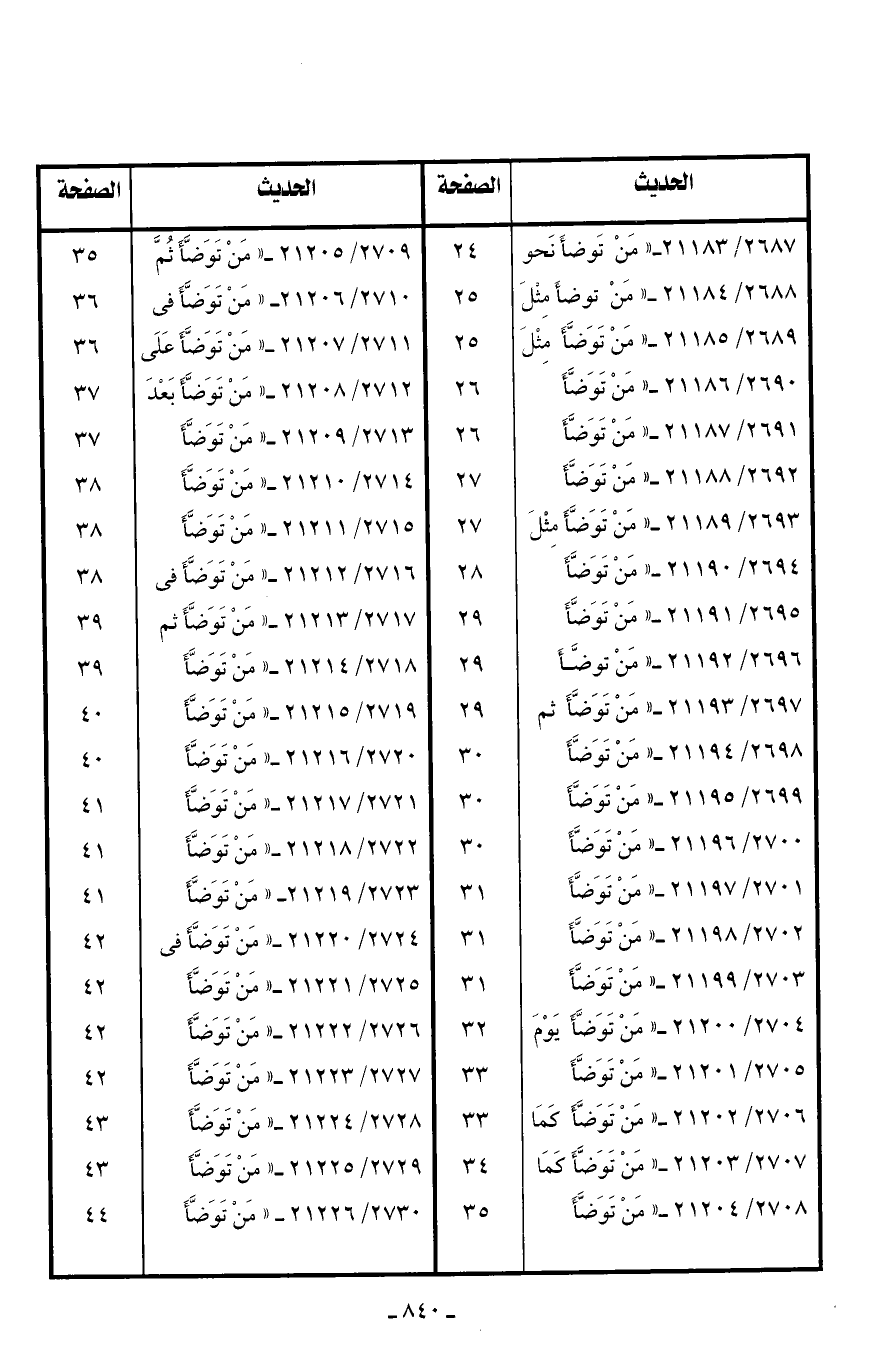 الحديث الصفحة
٢٦٨٧/ ٢١١٨٣ـ« مَنْ تَوضأَ نَحو ٢٤
٢٦٨٨/ ٢١١٨٤ ـ« مَنْ توضأَ مِثْلَ ٢٥
٢٦٨٩/ ٢١١٨٥ ـ« مَنْ تَوَضَّأَ مِثْلَ ٢٥
٢٦٩٠/ ٢١١٨٦ ـ« مَنْ تَوَضَّأَ ٢٦
٢٦٩١/ ٢١١٨٧ ـ« مَنْ تَوَضَّأَ ٢٦
٢٦٩٢/ ٢١١٨٨ ـ« مَنْ تَوَضَّأَ ٢٧
٢٦٩٣/ ٢١١٨٩ ـ« مَنْ تَوَضَّأَ مِثْلَ ٢٧
٢٦٩٤/ ٢١١٩٠ ـ« مَنْ تَوَضَّأَ ٢٨
٢٦٩٥/ ٢١١٩١ ـ« مَنْ تَوَضَّأَ ٢٩
٢٦٩٦/ ٢١١٩٢ ـ« مَنْ توضَّـأَ ٢٩
٢٦٩٧/ ٢١١٩٣ ـ« مَنْ تَوَضَّأَ ثم ٢٩
٢٦٩٨/ ٢١١٩٤ ـ« مَنْ تَوَضَّأَ ٣٠
٢٦٩٩/ ٢١١٩٥ ـ« مَنْ تَوَضَّأَ ٣٠
٢٧٠٠/ ٢١١٩٦ ـ« مَنْ تَوَضَّأَ ٣٠
٢٧٠١/ ٢١١٩٧ ـ« مَنْ تَوَضَّأَ ٣١
٢٧٠٢/ ٢١١٩٨ ـ« مَنْ تَوَضَّأَ ٣١
٢٧٠٣/ ٢١١٩٩ ـ« مَنْ تَوَضَّأَ ٣١
٢٧٠٤/ ٢١٢٠٠ ـ« مَنْ تَوَضَّأَ يَوْمَ ٣٢
٢٧٠٥/ ٢١٢٠١ ـ« مَنْ تَوَضَّأَ ٣٣
٢٧٠٦/ ٢١٢٠٢ ـ« مَنْ تَوَضَّأَ كَمَا ٣٣
٢٧٠٧/ ٢١٢٠٣ ـ« مَنْ تَوَضَّأَ كَمَا ٣٤
٢٧٠٨/ ٢١٢٠٤ ـ« مَنْ تَوَضَّأَ ٣٥
الحديث الصفحة
٢٧٠٩/ ٢١٢٠٥ ـ« مَنْ تَوَضَّأَ ثُمَّ ٣٥
٢٧١٠/ ٢١٢٠٦ـ « مَنْ تَوَضَّأَ فى ٣٦
٢٧١١/ ٢١٢٠٧ ـ« مَنْ تَوَضَّأَ عَلَى ٣٦
٢٧١٢/ ٢١٢٠٨ ـ« مَنْ تَوَضَّأَ بَعْدَ ٣٧
٢٧١٣/ ٢١٢٠٩ ـ« مَنْ تَوَضَّأَ ٣٧
٢٧١٤/ ٢١٢١٠ ـ« مَنْ تَوَضَّأَ ٣٨
٢٧١٥/ ٢١٢١١ ـ« مَنْ تَوَضَّأَ ٣٨
٢٧١٦/ ٢١٢١٢ ـ« مَنْ تَوَضَّأَ فى ٣٨
٢٧١٧/ ٢١٢١٣ ـ« مَنْ تَوَضَّأَ ثم ٣٩
٢٧١٨/ ٢١٢١٤ ـ« مَنْ تَوَضَّأَ ٣٩
٢٧١٩/ ٢١٢١٥ ـ« مَنْ تَوَضَّأَ ٤٠
٢٧٢٠/ ٢١٢١٦ ـ« مَنْ تَوَضَّأَ ٤٠
٢٧٢١/ ٢١٢١٧ ـ« مَنْ تَوَضَّأَ ٤١
٢٧٢٢/ ٢١٢١٨ ـ« مَنْ تَوَضَّأَ ٤١
٢٧٢٣/ ٢١٢١٩ـ « مَنْ تَوَضَّأَ ٤١
٢٧٢٤/ ٢١٢٢٠ ـ« مَنْ تَوَضَّأَ فى ٤٢
٢٧٢٥/ ٢١٢٢١ ـ« مَنْ تَوَضَّأَ ٤٢
٢٧٢٦/ ٢١٢٢٢ ـ« مَنْ تَوَضَّأَ ٤٢
٢٧٢٧/ ٢١٢٢٣ ـ« مَنْ تَوَضَّأَ ٤٢
٢٧٢٨/ ٢١٢٢٤ ـ« مَنْ تَوَضَّأَ ٤٣
٢٧٢٩/ ٢١٢٢٥ ـ« مَنْ تَوَضَّأَ ٤٣
٢٧٣٠/ ٢١٢٢٦ ـ« مَنْ تَوَضَّأَ ٤٤
ـ ٨٤٠ ـ